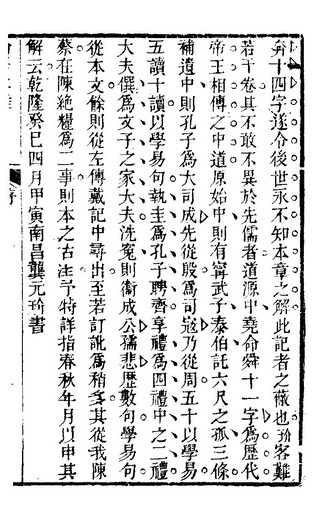 十四字遂令後世永不知本章之解此記者之蔽也玠客難
若干卷其不敢不異於先儒者道源中堯命舜十一字爲歷代
帝王相傳之中道原始中則有甯武子泰伯託六尺之孤三條
補遺中則孔子爲大司成先從殷爲司寇乃從周五十以學易
五讀十讀以學易句執圭爲孔子聘齊享禮爲四禮中之二禮
大夫僎爲文子之家大夫洗冤則衞成公孺悲歷數句學易句
從本文餘則從左傳戴記中尋出至若訂訛爲稍多其從我陳
蔡在陳絶糧爲二事則本之古注予特詳指春秋年月以申其
解云乾隆癸巳四月甲寅南昌龔元玠書